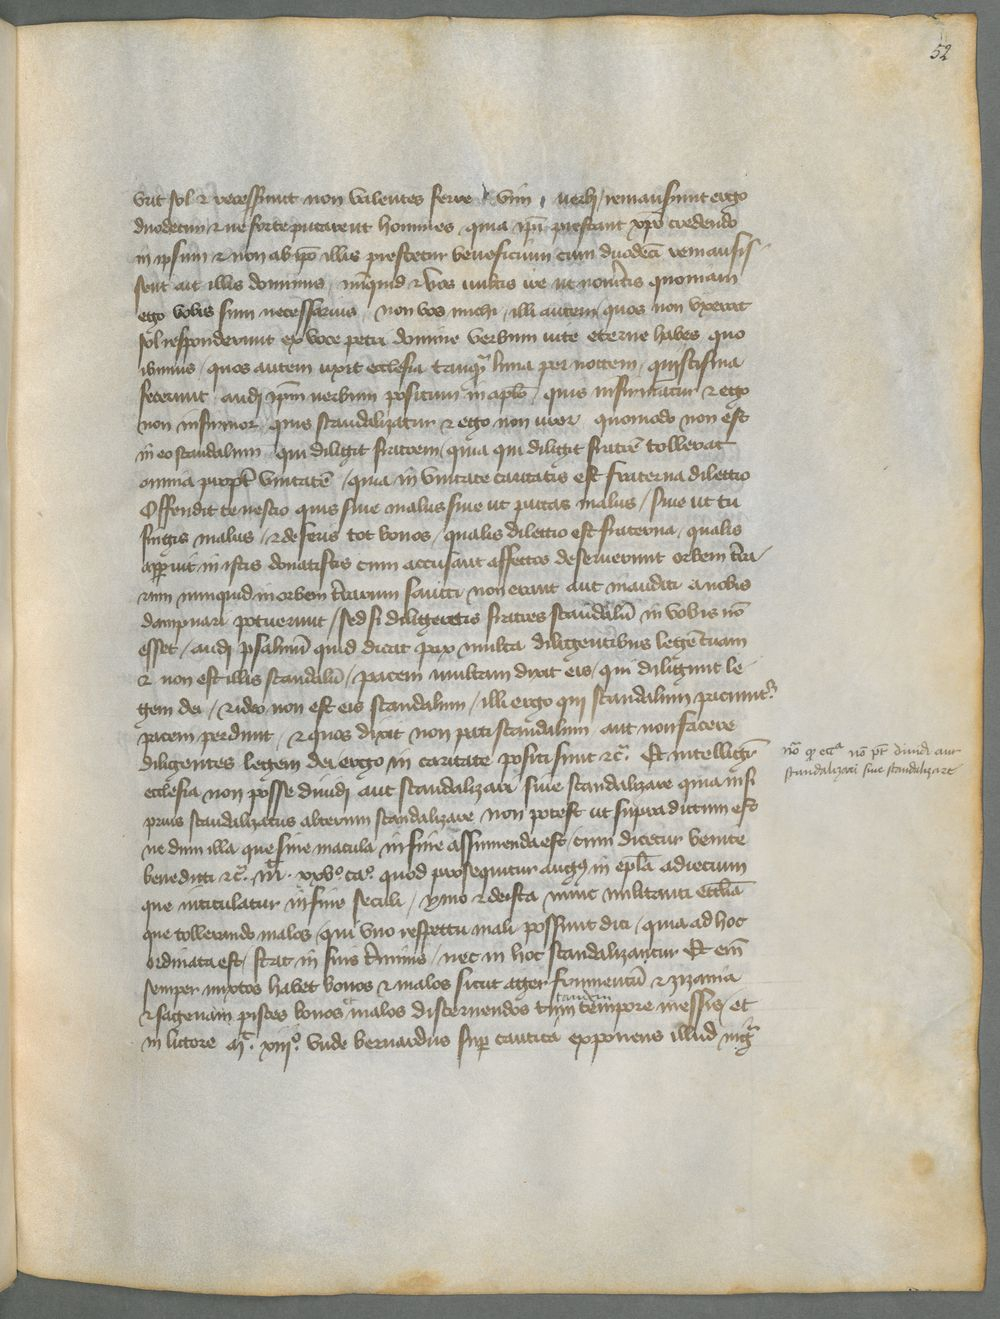 52
vrit sol & recesserunt non valentes ferre vim uerbi / remanserunt ergo
duodecim & ne forte putarent homines quia ip̄i prestant xp̄o credendo
in ipsum & non ab ip̄o illis prestetur beneficium cum duodecī remansis
sent ait illis dominus / nūquid & vos uultis ire ut noueritis quoniam
ego vobis sum necessarius / non vos michi / illi autem quos non vxerat
sol responderunt ex voce petri domine verbum uite eterne habes quo
ibimus / quos autem uxit ecclesia tanquā luna per noctem / quiscisma
fecerunt audi ip̄m uerbum positum in apl̄o / quis infirmatur & ego
non infirmor quis scandalizatur & ego non uror quomodo non est
in eo scandalum qui diligit fratrem / quia qui diligit fratrē tollerat
omnia propt̄ vnitatē / quia in vnitate caritatis est fraterna dilectio
Offendit te nescio quis siue malus siue ut putas malus / siue ut tu
fingis malus / & deseris tot bonos / qualis dilectio est fraterna / qualis
apparuit in istis donatistis cum accusant affectos deseruerunt orbem t̄ra
rum nunquid in orbem t̄rarum sancti non erant aut inauditi a nobis
dampnari potuerunt / sed si diligeretis fratres scandalū in vobis nō
esset / audi psalmū quid dicat pax multa diligentibus legē tuam
& non est illis scandalū / pacem multam dixit eis / qui diligunt le
gem dei / & ideo non est eis scandalum / illi ergo qui scandalum paciunt᷑
pacem perdunt / & quos dixit non pati scandalum aut non facere
diligentes legem dei ergo in caritate positi sunt &c̄ Et intelligit᷑
ecclesia non posse diuidi aut scandalizari siue scandalizare quia nisi
prius scandalizatus alterum scandalizare non potest ut supra dictum est
nedum illa que sine macula in fine assumenda est / cum dicetur venite
benedicti &c̄ M̄ . xxvᵒ. caᵒ. quod prosequitur augꝰ in ep̄la ad iecium
que intitulatur in fine seculi / ymo & de ista nunc militanti eccl̄ia
que tollerando malos / qui vno respectu mali possunt dici / quia ad hoc
ordinata est / stat in suis t̄minis / nec in hoc scandalizantur Et eīm
semper mixtos habet bonos & malos sicut ager frumentū & zizania
& sagenam pisces bonos et malos discernendos tandem tempore messis / et
in littore M̄. xiijᵒ. Vnde bernardus sup̄ cantica exponens illud nigra
nō q̄ eccᵃ nō pt̄ diuidi aut
scandalizari siue scandalizare